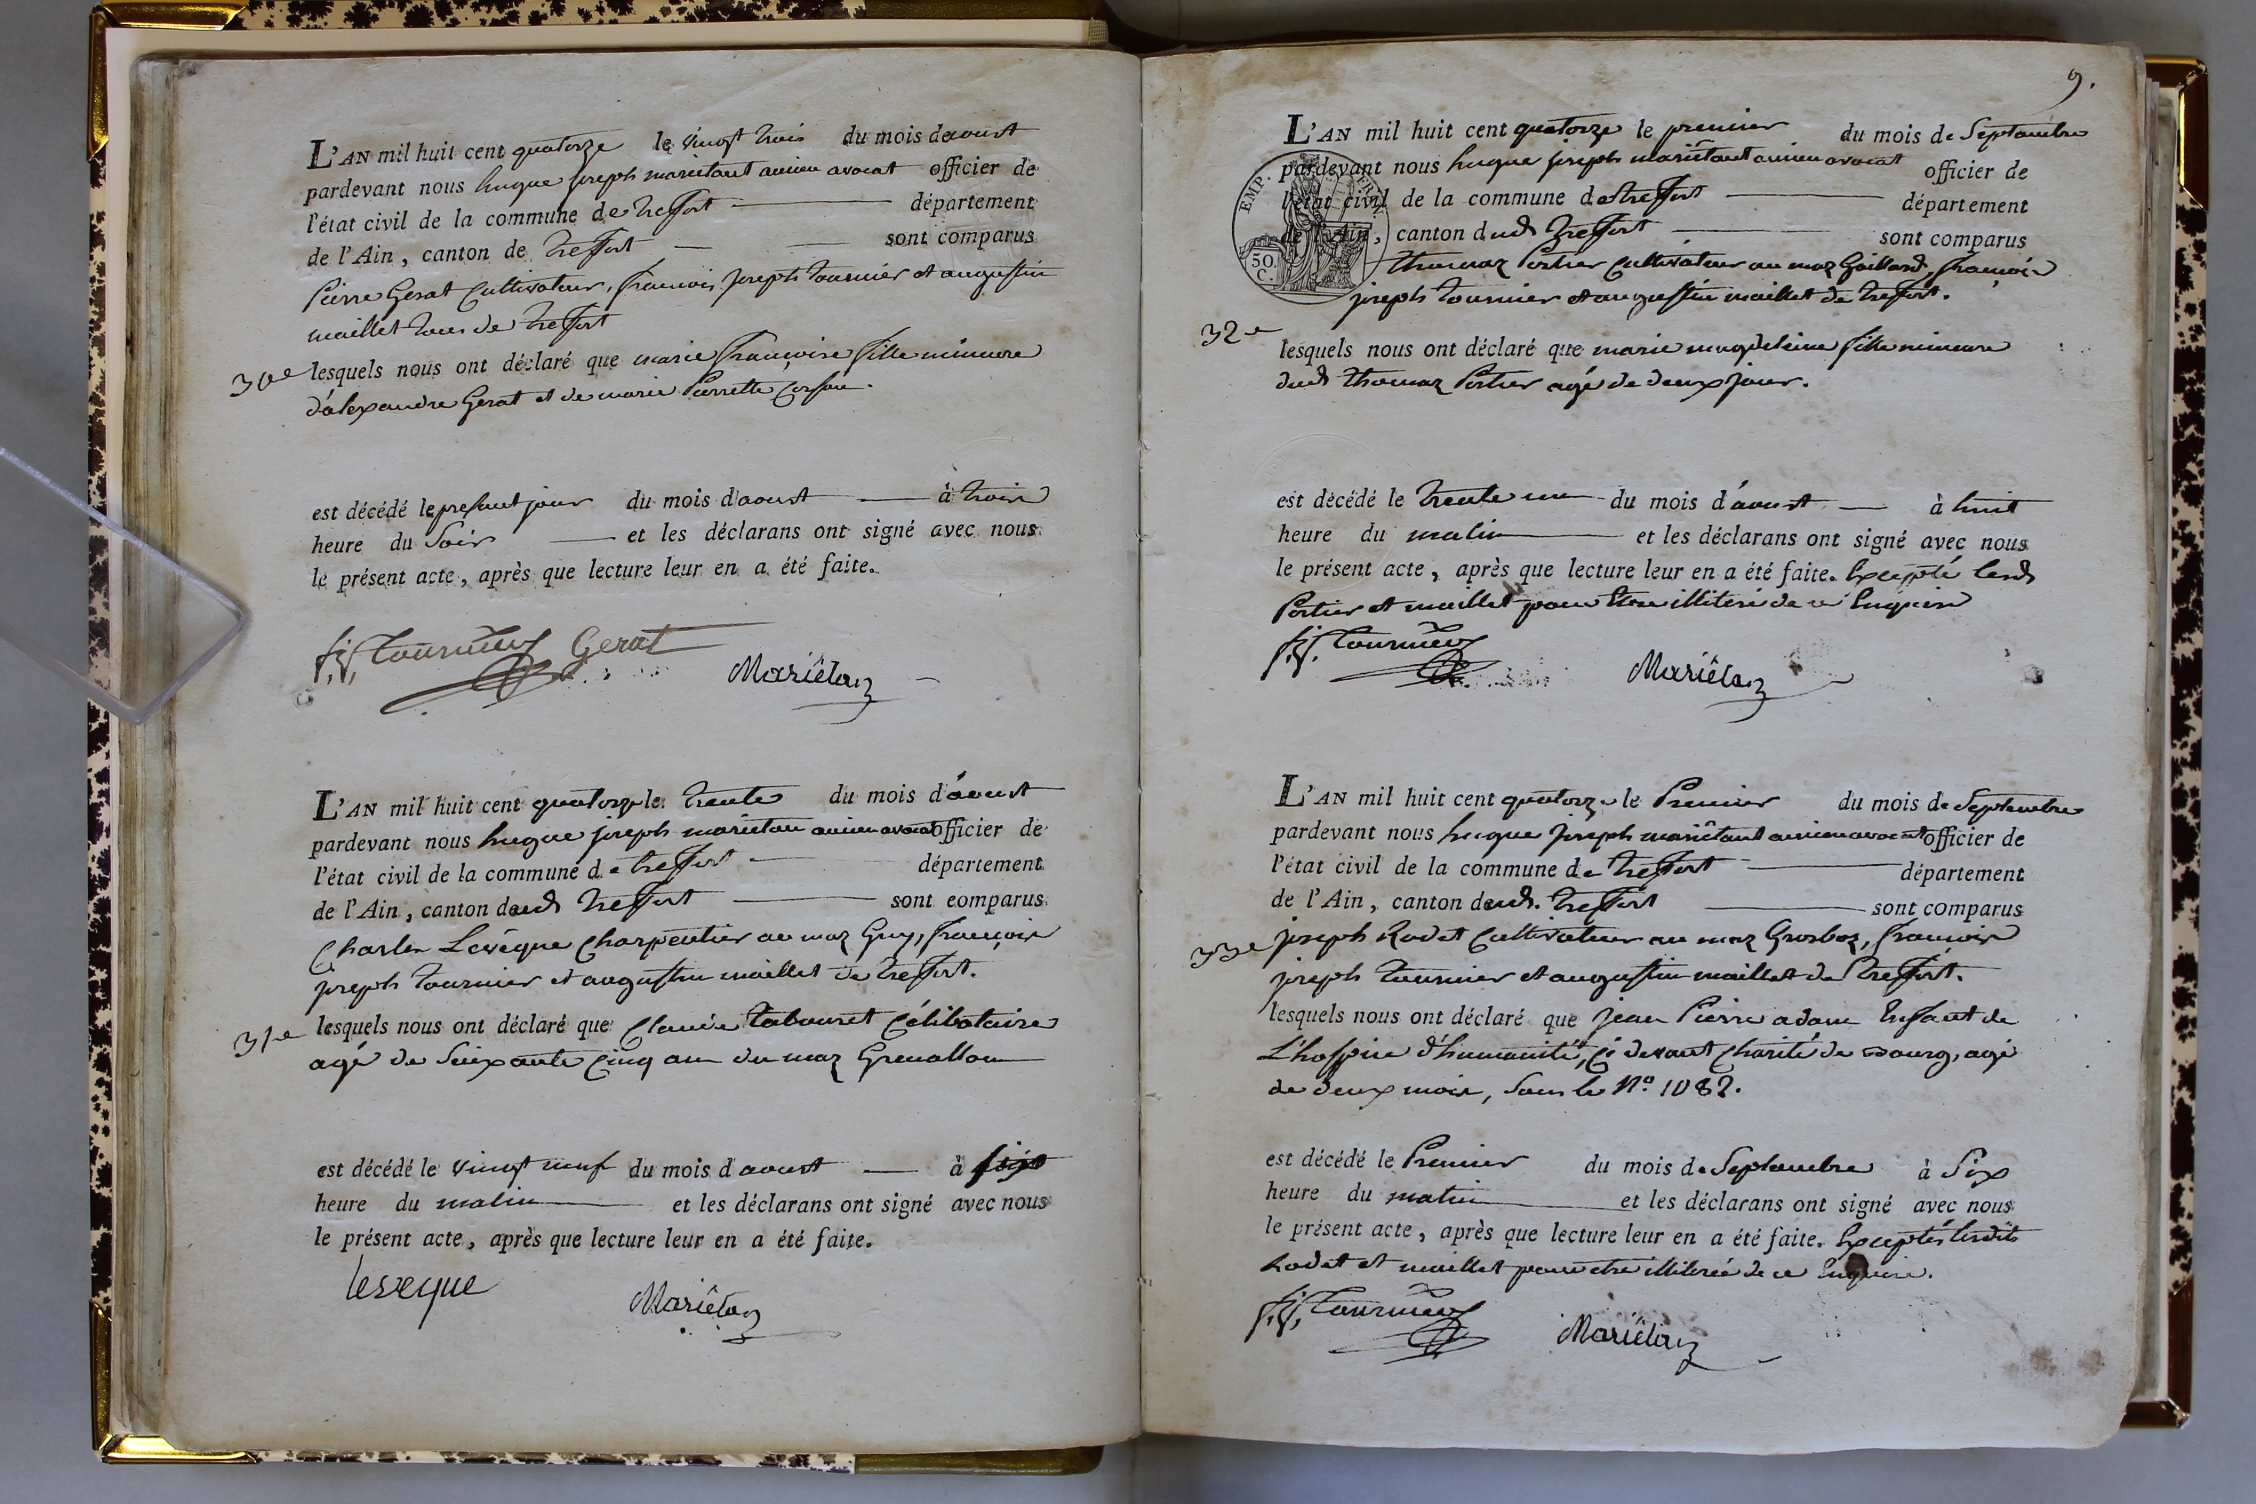 L'AN mil huit cent quatorze le vingt trois du mois daoust
pardevant nous hugue joseph mariétant ancien avocat officier de
l'état civil de la commune de treffort département
de l'Ain, canton de treffort sont comparus
Pierre Gerat Cultivateur, francois joseph tournier et augustin
maillet tous de treffort
30e lesquels nous ont déclaré que marie françoise fille mineure
d'alexandre Gerat et de marie Pierrette
est décédé le present jour du mois d'aoust à trois
heure du Soir et les déclarans ont signé avec nous
le présent acte, après que lecture leur en a été faite.
f. j. tournier Gerat
Mariêtan
L'AN mil huit cent quatorze le trente du mois d'aoust
pardevant nous hugue joseph mariétan ancien avocat officier de
l'état civil de la commune de treffort département
de l'Ain, canton dudt treffort sont comparus
Charles Levêque Charpentier au maz Guy, françois
joseph tournier et augustin maillet de treffort.
31e lesquels nous ont déclaré que Claude tabouret Célibataire
agé de Soixante Cinq ans du maz
est décédé le vingt neuf du mois d'aoust à
heure du matin et les déclarans ont signé avec nous
le présent acte, après que lecture leur en a été faite.
leveque
Mariêtan
9.
L'AN mil huit cent quatorze le premier du mois de Septembre
pardevant nous hugue joseph mariêtant ancien avocat officier de
l'état civil de la commune de treffort département
de l'Ain, canton dudt treffort sont comparus
EMP.
50 C.
thomaz Portier Cultivateur au maz Gaillard, françois
joseph tournier et augustin maillet de treffort.
32e
lesquels nous ont déclaré que marie magdeleine fille mineure
dudt thomaz Portier agé de deux jour.
est décédé le trente un du mois d'aoust à huit
heure du matin et les déclarans ont signé avec nous
le présent acte, après que lecture leur en a été faite. Excepté lesdt
Portier et maillet pour être illiteré de ce Enquis
f. j. tournier
Mariêtan
L'AN mil huit cent quatorze le Premier du mois de Septembre
pardevant nous hugue joseph mariêtant ancien avocat officier de
l'état civil de la commune de treffort département
de l'Ain, canton dudt. treffort sont comparus
33e joseph Rodet Cultivateur au maz Grosboz, francois
joseph tournier et augustin maillet de treffort.
lesquels nous ont déclaré que jean Pierre adam Enfant de
L'hospice d'humanité, Ci devant Charité de Bourg, agé
de deux mois, sous le No. 1082.
est décédé le Premier du mois de Septembre à Six
heure du matin et les déclarans ont signé avec nous
le présent acte, après que lecture leur en a été faite. Exceptés lesdits
Rodet et maillet pour etre illiterée de ce Enquis.
f. j. tournier
Mariêtan